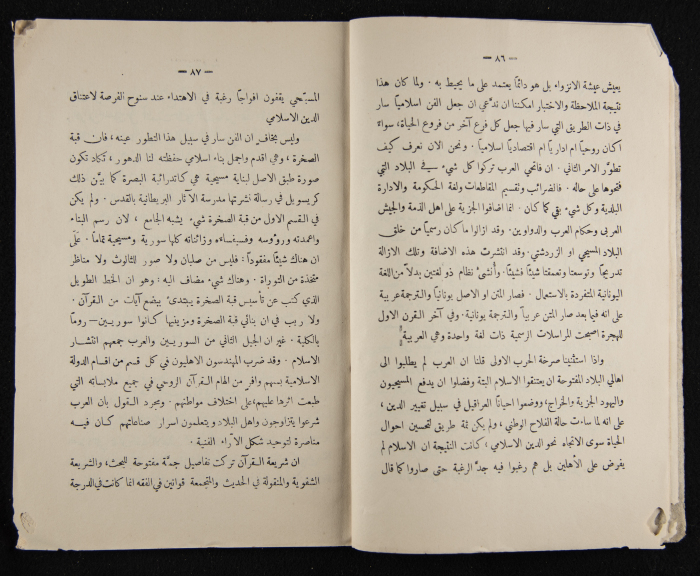 — ٨٦ —
يعيش عيشة الانزواء بل هو دائماً يعتمد على ما يحيط به . ولما كان هذا
نتيجة الملاحظة والاختبار امكننا ان ندّعي ان جعل الفن اسلامياً سار
في ذات الطريق التي سار فيها جعل كل فرع آخر من فروع الحياة، سواءً
اكان روحياً ام ادارياً ام اقتصادياً اسلامياً . ونحن الان نعرف كيف
تطوّر الامر الثاني . ان فاتحي العرب تركوا كل شيء في البلاد التي
فتحوها على حاله . فالضرائب وتقسيم المقاطعات ولغة الحكومة والادارة
البلدية وكل شيء بقي كما كان . انما اضافوا الجزية على اهل الذمة والجيش
العربي وحكام العرب والدواوين . وقد ازالوا ما كان رسمياً من خلق
البلاد المسيحي او الزردشتي . وقد انتشرت هذه الاضافة وتلك الازالة
تدريجاً وتوسعتا وتعمقتا شيئاً فشيئاً . وأُنشئ نظام ذو لغتين بدلاً من اللغة
اليونانية المتفردة بالاستعمال . فصار المتن او الاصل يونانياً والترجمة عربية
على انه فيما بعد صار المتن عربياً والترجمة يونانية . وفي آخر القرن الاول
للهجرة اصبحت المراسلات الرسمية ذات لغة واحدة وهي العربية
واذا استثنينا صرخة الحرب الاولى قلنا ان العرب لم يطلبوا الى
اهالي البلاد المفتوحة ان يعتنقوا الاسلام البتة وفضلوا ان يدفع المسيحيون
واليهود الجزية والخراج، ووضعوا احياناً العراقيل في سبيل تغيير الدين ،
على انه لما ساءت حالة الفلاح الوطني ، ولم يكن ثمة طريق لتحسين احوال
الحياة سوى الاتجاه نحو الدين الاسلامي ، كانت النتيجة ان الاسلام لم
يفرض على الأهلين بل هم رغبوا فيه جدَّ الرغبة حتى صاروا كما قال
— ٨٧ —
المسبّحي يقفون افواجاً رغبة في الاهتداء عند سنوح الفرصة لاعتناق
الدين الاسلامي
وليس بخاف ان الفن سار في سبيل هذا التطور عينه ، فان قبة
الصخرة ، وهي اقدم واجمل بناء اسلامي حفظته لنا الدهور ، تكاد تكون
صورة طبق الاصل لبناية مسيحية هي كاتدرائية البصرة كما بيّن ذلك
كريسويل في رسالة نشرتها مدرسة الآثار البريطانية بالقدس . ولم يكن
في القسم الاول من قبة الصخرة شيء يشبه الجامع ، لان رسم البناء
واعمدته ورؤوسه وفسيفساءه وزائناته كلها سورية ومسيحية تماماً . عَلَى
ان هناك شيئاً مفقوداً : فليس من صلبان ولا صور للثالوث ولا مناظر
متخذة من التوراة . وهناك شيء مضاف اليه : وهو ان الخط الطويل
الذي كتب عن تأسيس قبة الصخرة يبتدئ ببضع آيات من القرآن .
ولا ريب في ان بنائي قبة الصخرة ومزينيها كانوا سوريين – روماً
بالكلية . غير ان الجيل الثاني من السوريين والعرب جمعهم انتشار
الاسلام . وقد ضرب المهندسون الاهليون في كل قسم من اقسام الدولة
الاسلامية بسهم وافر من الهام القرآن الروحي في جميع ملابساته التي
طبعت اثرها عليهم، على اختلاف مواطنهم . ومجرد القول بان العرب
شرعوا يتزاوجون واهل البلاد ويتعلمون اسرار صناعاتهم كان فيه
مناصرة لتوحيد شكل الآراء الفنية .
ان شريعة القرآن تركت تفاصيل جمة مفتوحة للبحث، والشريعة
الشفوية والمنقولة في الحديث والمتجمعة قوانين في الفقه انما كانت في الدرجة